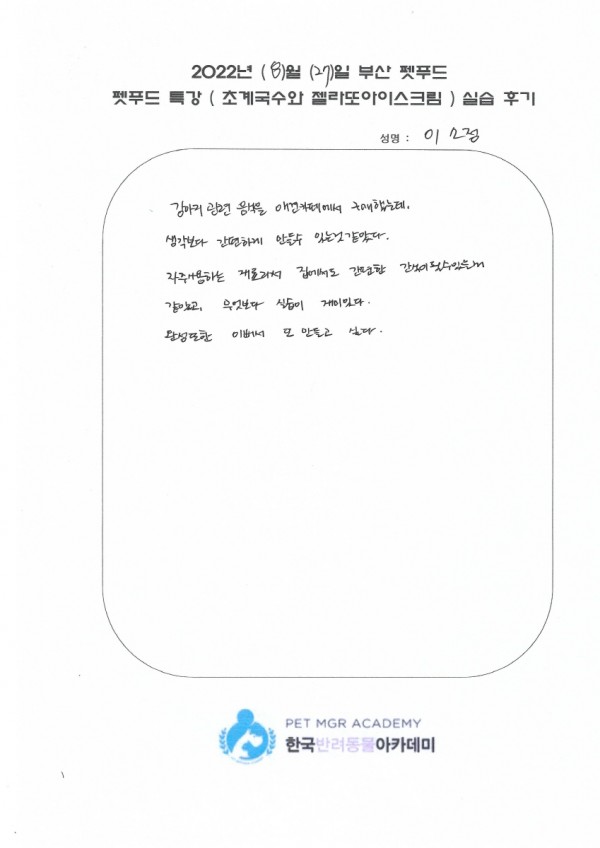 2022년 ( 8 )월 ( 27 )일 부산 펫푸드
펫푸드 특강 ( 초계국수와 젤라또아이스크림 ) 실습 후기
성명 : 이 소정
강아지 관련 음식을 애견카페에서 구매했는데,
생각보다 간편하게 만들수 있는것 같았다.
자주사용하는 재료라서 집에서도 간단한 간식이 될수있을거
같았고, 무엇보다 실습이 재미있다.
완성또한 이뻐서 또 만들고 싶다.
PET MGR ACADEMY
한국반려동물아카데미